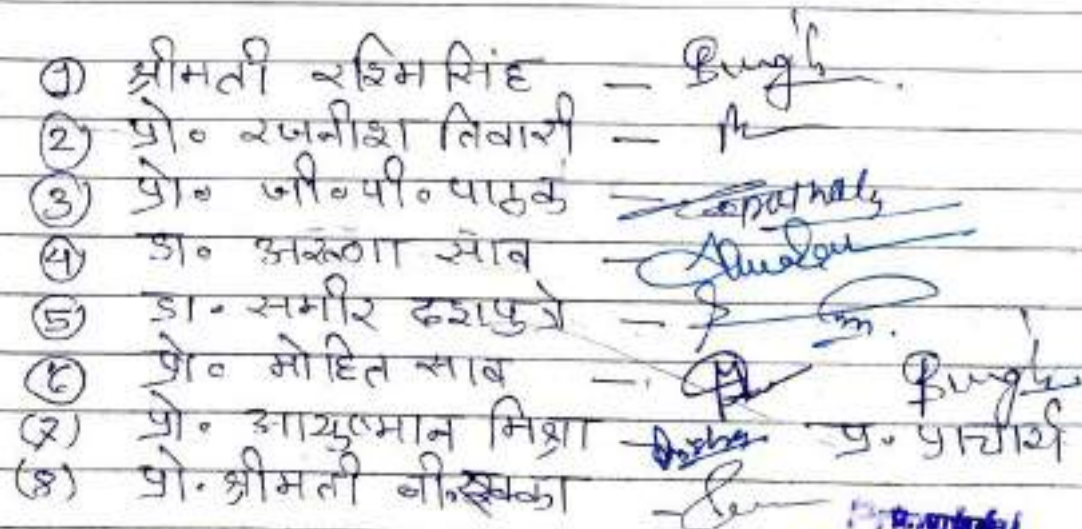 ① श्रीमती रश्मि सिंह — Bingh.
② प्रो० रजनीश तिवारी —
③ प्रो० जी०पी० पाठक — Gpathak
④ डा० अरूणा साव —
⑤ डा. समीर दशपुत्रे —
⑥ प्रो० मोहित साव —
(7) प्रो. आयुष्मान मिश्रा
प्र. प्राचार्य
(8) प्रो. श्रीमती बी.एक्का